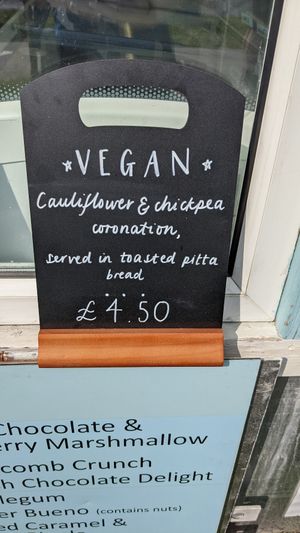 VEGAN
Cauliflower & chickpea
coronation,
served in toasted pitta
bread
£4.50
Chocolate &
Marshmallow
Crunch
Chocolate Delight
Bueno (contains nuts)
Caramel &